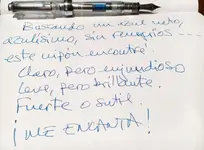 Buscando un azul puro,
azulísimo, sin remilgos ---
este nipón encontré.
Claro, pero enjundioso
Leve, pero brillante.
Fuerte o sutil.
¡ME ENCANTA!